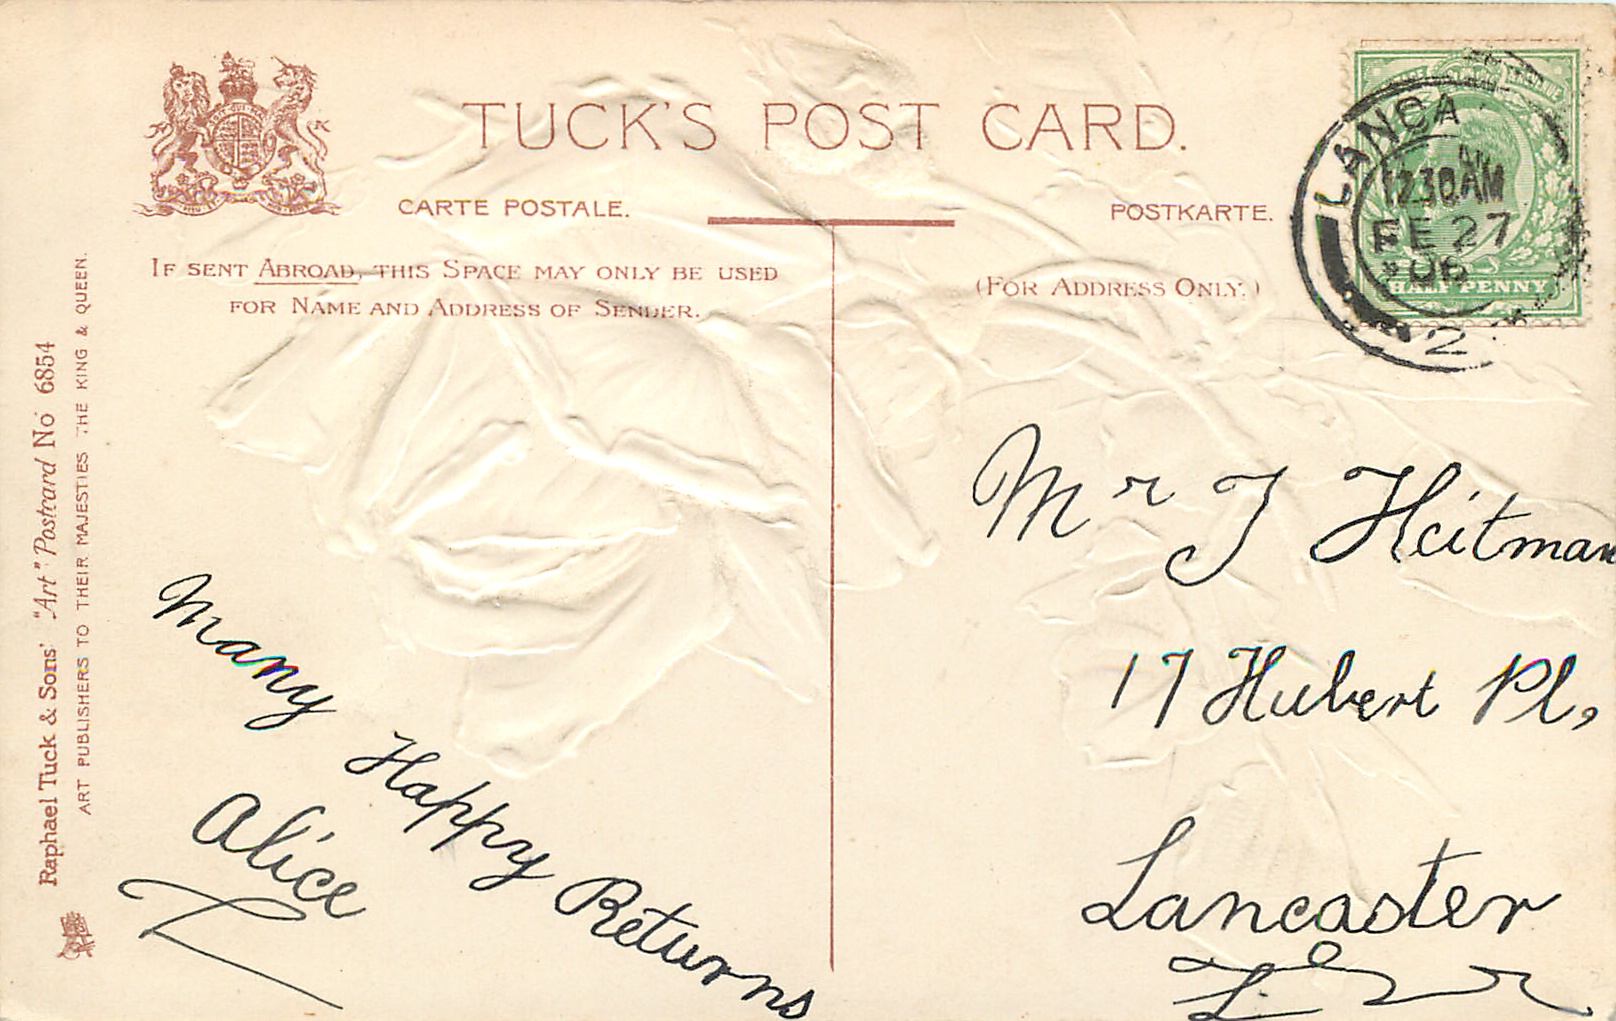 TUCK'S POST CARD.
CARTE POSTALE.
POSTKARTE.
IF SENT ABROAD, THIS SPACE MAY ONLY BE USED
FOR NAME AND ADDRESS OF SENDER.
(FOR ADDRESS ONLY.)
Raphael Tuck & Sons' "Art" Postcard No 6854
ART PUBLISHERS TO THEIR MAJESTIES THE KING & QUEEN.
LANCA
12.30AM
FE 27
06
2
HALF PENNY
Many Happy Returns
Alice
Mr J Heitman
17 Hubert Pl,
Lancaster